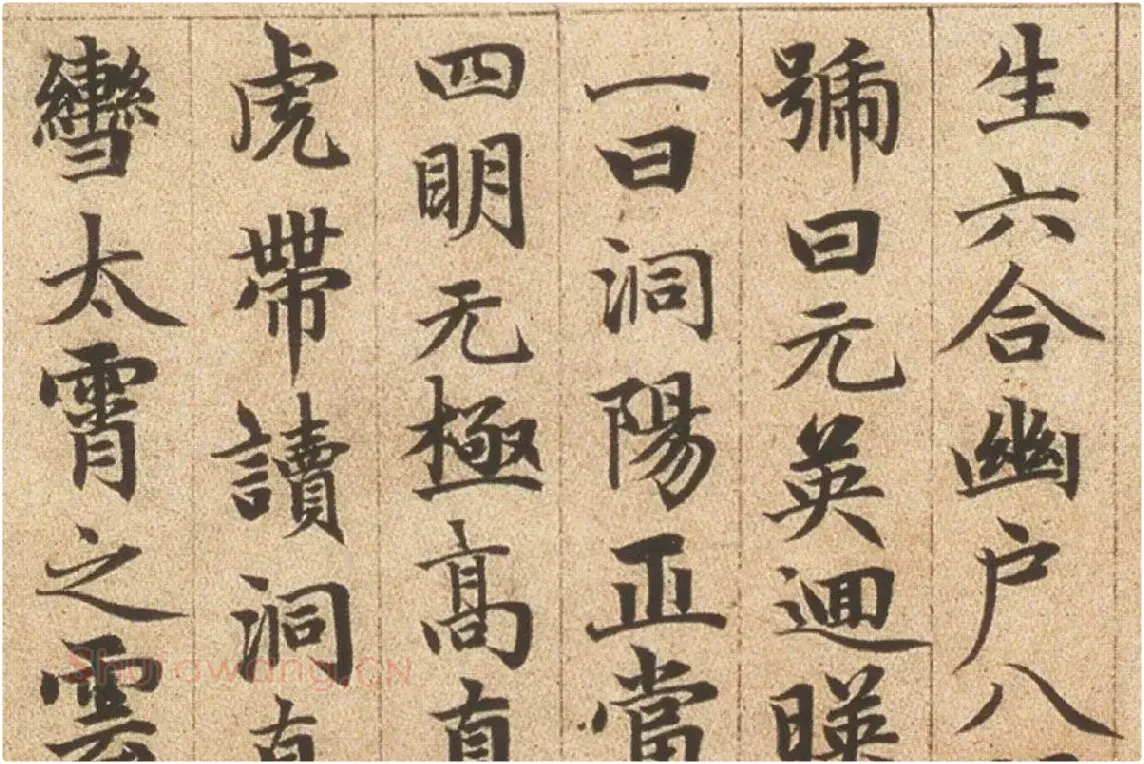 生六合幽户八
號曰元英逥暎
一曰洞陽正當
四明无極高真
虎帶讀洞真
轡太霄之雲
Shufawang.CN